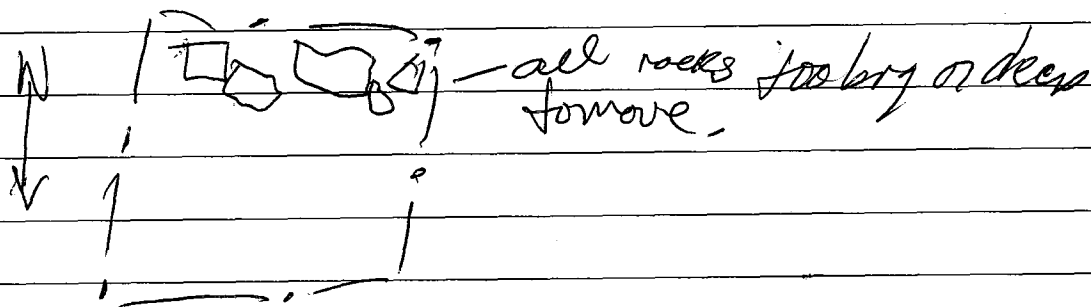 N
all rocks too big or deep
to move.